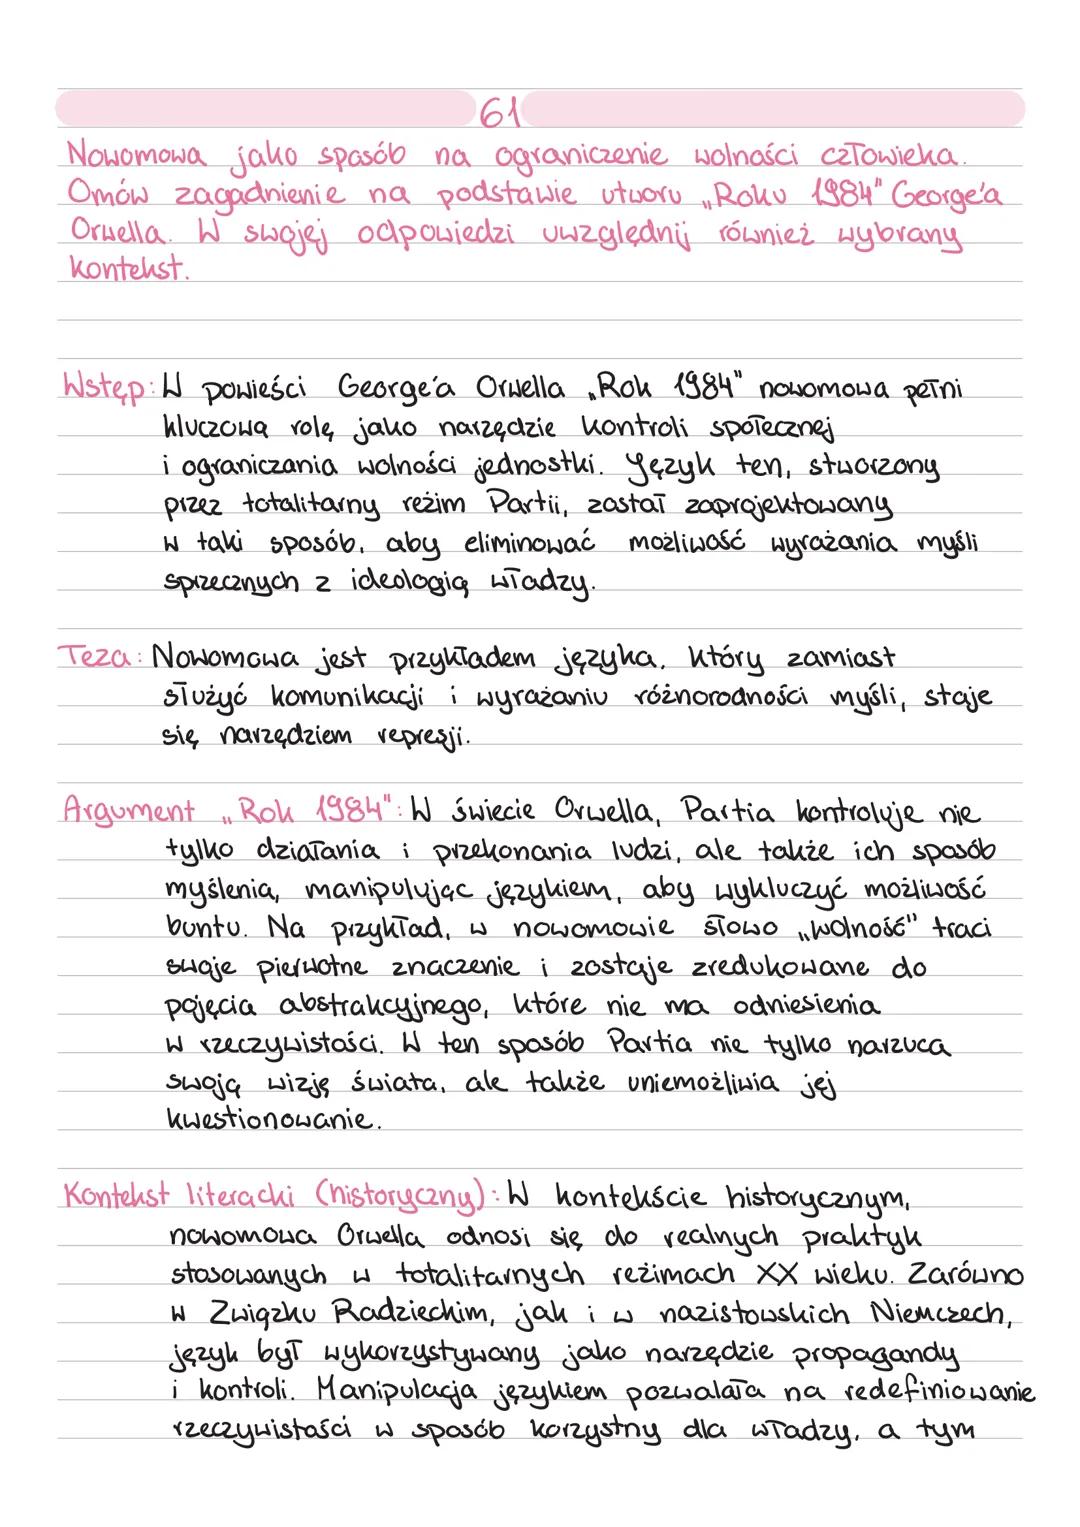 61
Nowomowa jako sposób na ograniczenie wolności człowieka.
Omów zagadnienie na podstawie utworu „Roku 1984" George'a
Orwella. W swojej odpowiedzi uwzględnij również wybrany
kontekst.
Wstęp: W powieści George'a Orwella „Rok 1984" nowomowa pełni
kluczową rolę jako narzędzie kontroli społecznej
i ograniczania wolności jednostki. Język ten, stworzony
przez totalitarny reżim Partii, został zaprojektowany
w taki sposób, aby eliminować możliwość wyrażania myśli
sprzecznych z ideologią władzy.
Teza: Nowomowa jest przykładem języka, który zamiast
służyć komunikacji i wyrażaniu różnorodności myśli, staje
się narzędziem represji.
Argument „Rok 1984": W świecie Orwella, Partia kontroluje nie
tylko działania i przekonania ludzi, ale także ich sposób
myślenia, manipulując językiem, aby wykluczyć możliwość
buntu. Na przykład, w nowomowie słowo „wolność" traci
swoje pierwotne znaczenie i zostaje zredukowane do
pojęcia abstrakcyjnego, które nie ma odniesienia
w rzeczywistości. W ten sposób Partia nie tylko narzuca
swoją wizję świata, ale także uniemożliwia jej
kwestionowanie.
Kontekst literacki (historyczny): W kontekście historycznym,
nowomowa Orwella odnosi się do realnych praktyk
stosowanych w totalitarnych reżimach XX wieku. Zarówno
w Związku Radzieckim, jak i w nazistowskich Niemczech,
język był wykorzystywany jako narzędzie propagandy
i kontroli. Manipulacja językiem pozwalała na redefiniowanie
rzeczywistości w sposób korzystny dla władzy, a tym